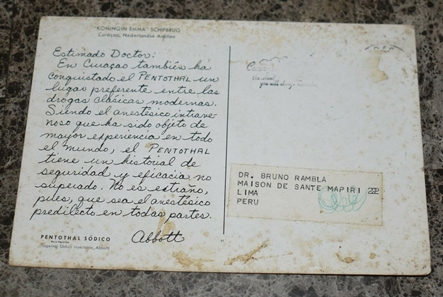 "KONINGIN EMMA" SCHIPBRUG
Curaçao, Nederlandse Antillen
Estimado Doctor:
En Curaçao también ha
conquistado el PENTOTHAL un
lugar preferente entre las
drogas clásicas modernas.
Siendo el anestésico intrave
noso que ha sido objeto de
mayor experiencia en todo
el mundo, el PENTOTHAL
tiene un historial de
seguridad y eficacia no
superado. No es extraño,
pues, que sea el anestésico
predilecto en todas partes.
Abbott
PENTOTHAL SÓDICO
Abbott
DR. BRUNO RAMBLA
MAISON DE SANTE MAPIRI
LIMA
PERU